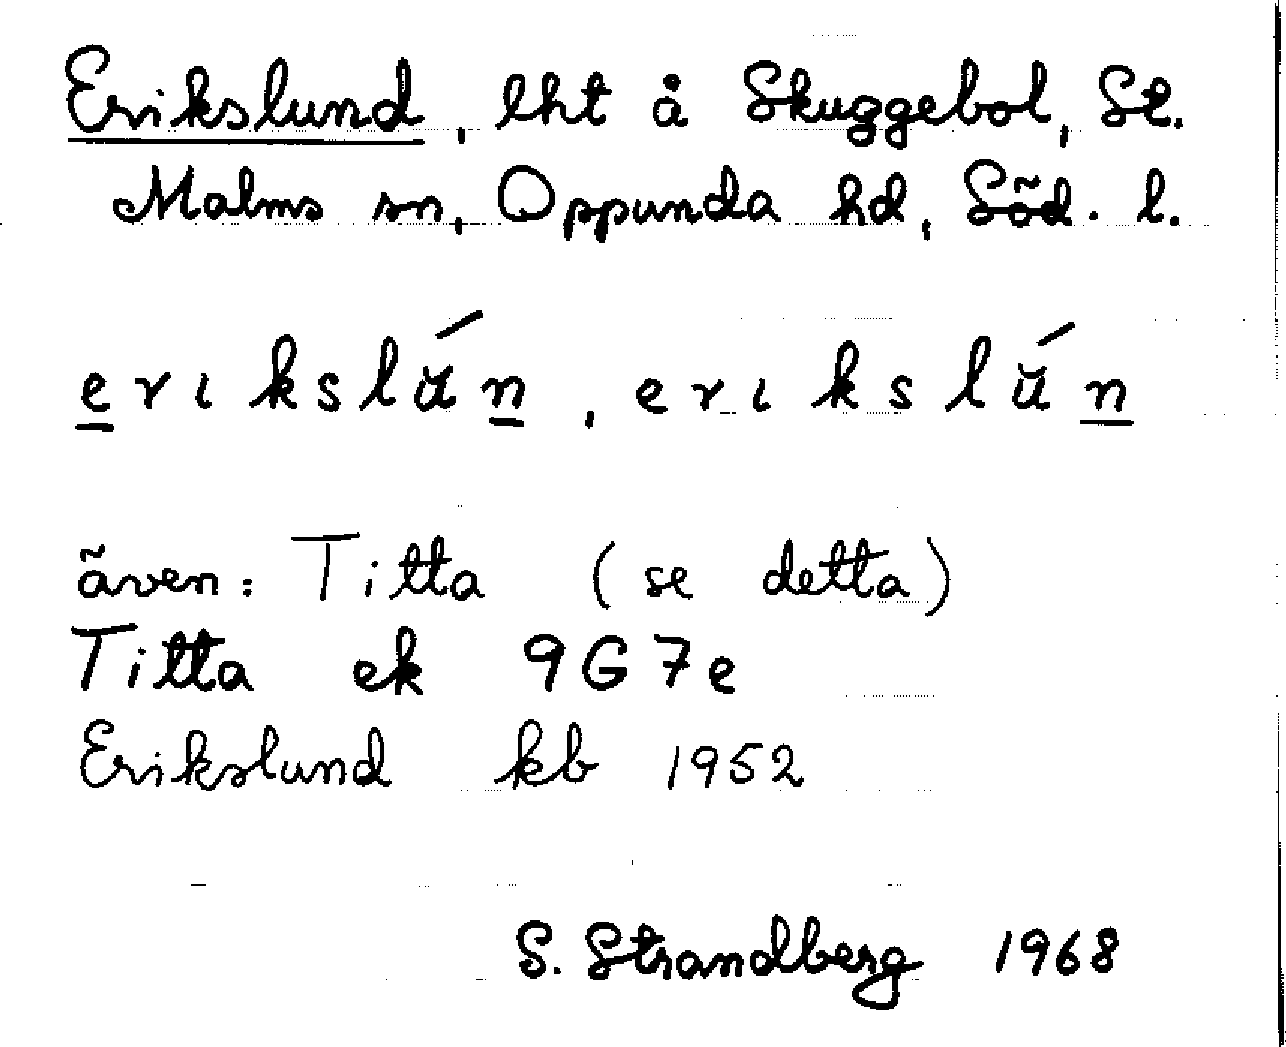 Erikslund, lht å Skuggebol, St.
Malms sn, Oppunda hd, Söd. l.
erıkslŭ́n, erıkslŭ́n
även: Titta (se detta)
Titta ek 9G7e
Erikslund kb 1952
S. Strandberg 1968